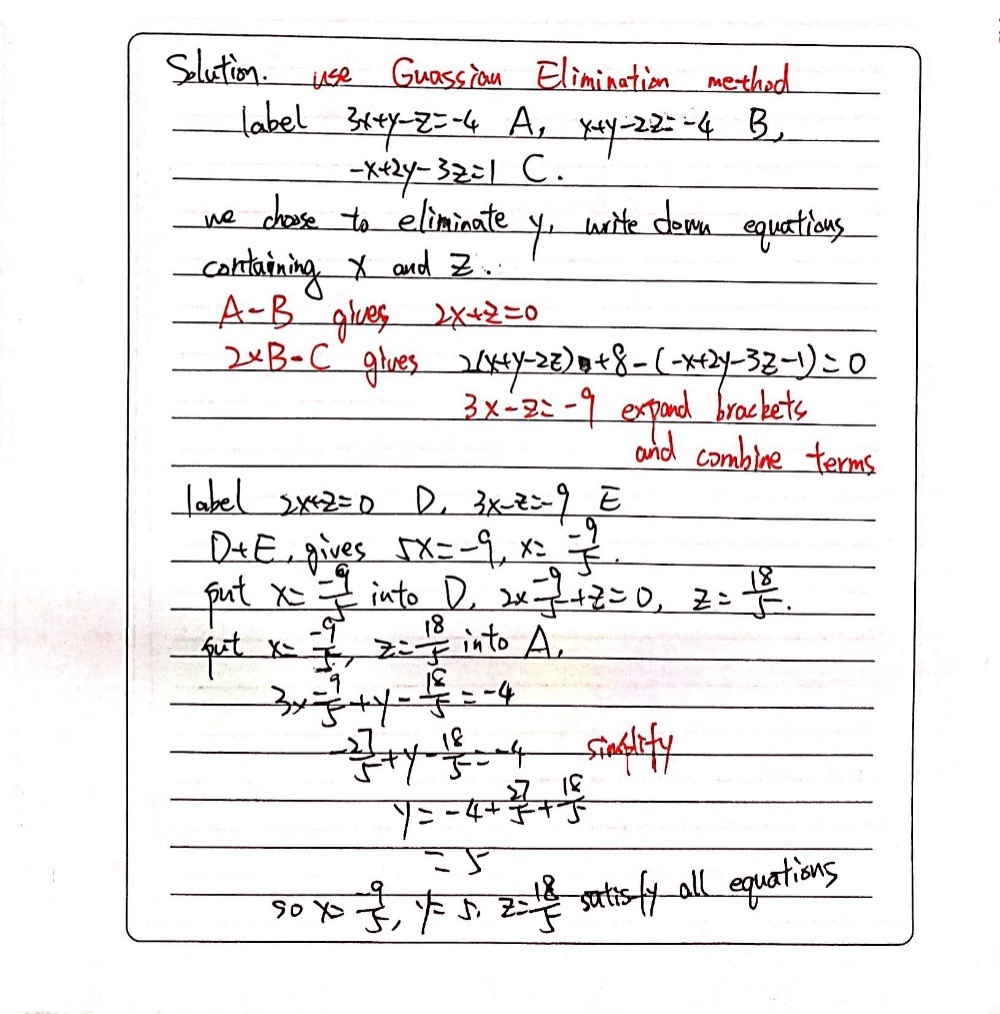 Solution. use Guassian Elimination method
label 3x+y-z=-4 A, x+y-2z=-4 B,
-x+2y-3z=1 C.
we choose to eliminate y, write down equations
containing x and z.
A-B gives 2x+z=0
2×B-C gives 2(x+y-2z)+8-(-x+2y-3z-1)=0
3x-z=-9 expand brackets
and combine terms
label 2x+z=0 D, 3x-z=-9 E
D+E, gives 5x=-9, x=-9/5.
put x=-9/5 into D, 2×-9/5+z=0, z=18/5.
put x=-9/5, z=18/5 into A,
3×-9/5+y-18/5=-4
-27/5+y-18/5=-4 simplify
y=-4+27/5+18/5
=5
so x=-9/5, y=5, z=18/5 satisfy all equations